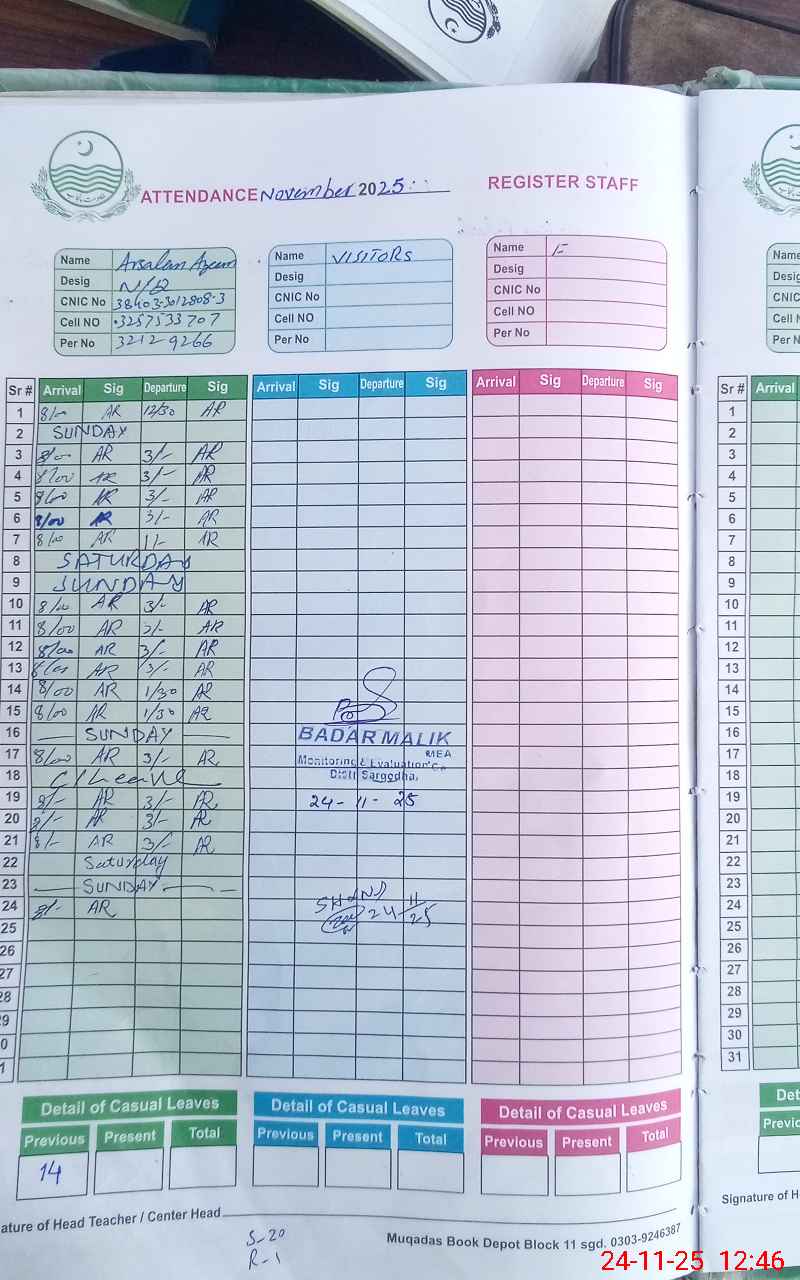 ATTENDANCE November 2025 REGISTER STAFF
Name Arsalan Azeem
Desig N/Q
CNIC No 38403-3012808-3
Cell NO 3257533707
Per No 32129266
Name VISITORS
Desig
CNIC No
Cell NO
Per No
Name
Desig
CNIC No
Cell NO
Per No
Sr # Arrival Sig Departure Sig Arrival Sig Departure Sig Arrival Sig Departure Sig
1 8/00 AR 12/30 AR
2 SUNDAY
3 8/00 AR 3/- AR
4 8/00 AR 3/- AR
5 8/00 AR 3/- AR
6 8/00 AR 3/- AR
7 8/00 AR 1/- AR
8 SATURDAY
9 SUNDAY
10 8/00 AR 3/- AR
11 8/00 AR 3/- AR
12 8/00 AR 3/- AR
13 8/00 AR 3/- AR
14 8/00 AR 1/30 AR
15 8/00 AR 1/30 AR
16 SUNDAY
17 8/00 AR 3/- AR
18 C/Leave
19 8/- AR 3/- AR
20 8/- AR 3/- AR
21 8/- AR 3/- AR
22 Saturday
23 SUNDAY
24 8/- AR
25
26
27
28
9
0
1
BADAR MALIK
MEA
Monitoring & Evaluation
Distt Sargodha.
24-11-25
24/11/25
Detail of Casual Leaves
Previous Present Total
14
Detail of Casual Leaves
Previous Present Total
Detail of Casual Leaves
Previous Present Total
ature of Head Teacher / Center Head
S-20
R-1
Muqadas Book Depot Block 11 sgd. 0303-9246387
Name
Desig
CNIC
Cell N
Per N
Sr # Arrival
1
2
3
4
5
6
7
8
9
10
11
12
13
14
15
16
17
18
19
20
21
22
23
24
25
26
27
28
29
30
31
Det
Previo
Signature of H
24-11-25 12:46